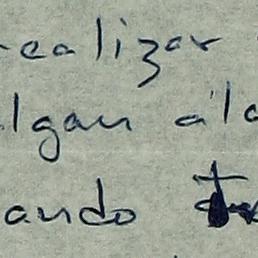 realizar
lgan a la
ando